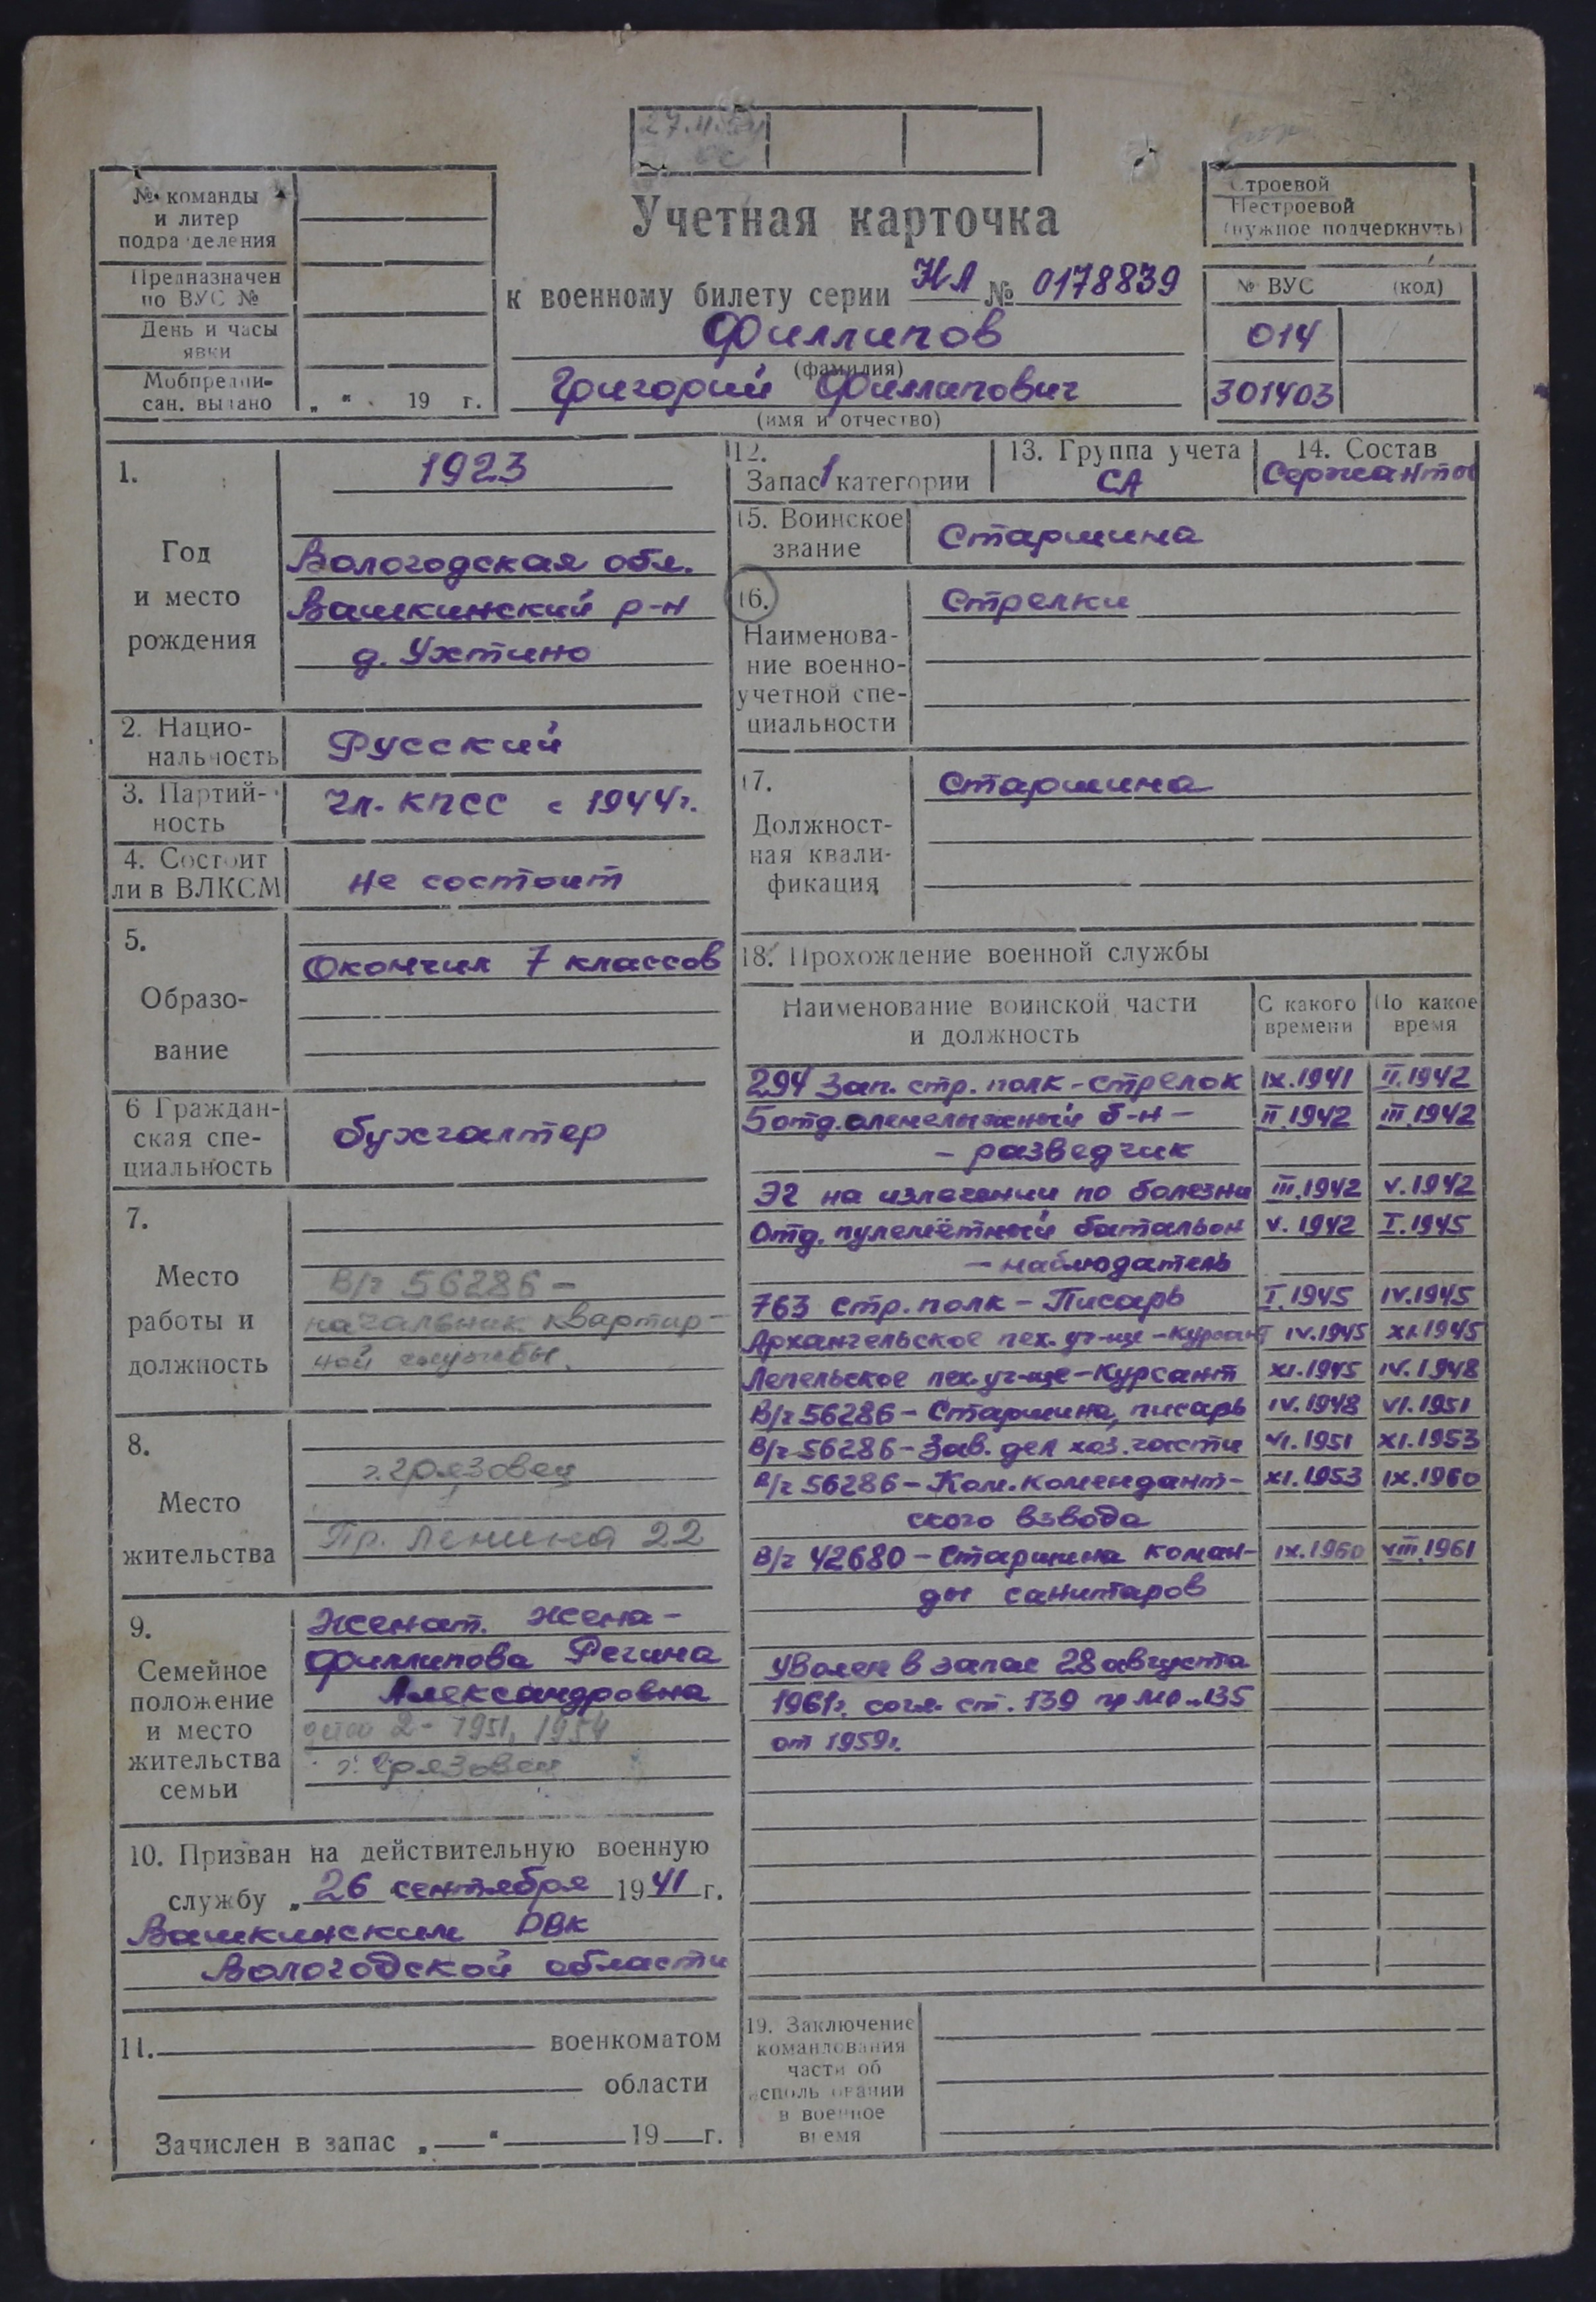 27.11.
№ команды
и литер
подразделения
Предназначен
по ВУС №
День и часы
явки
Мобпредпи-
сан. выдано „ “ 19 г.
Учетная карточка
к военному билету серии НЛ № 0178839
Филлипов
(фамилия)
Григорий Филлипович
(имя и отчество)
Строевой
Нестроевой
(нужное подчеркнуть)
№ ВУС (код)
014
301403
1.
Год
и место
рождения
1923
Вологодская обл.
Вашкинский р-н
д. Ухтино
2. Нацио-
нальность
Русский
3. Партий-
ность
Чл. КПСС с 1944г.
4. Состоит
ли в ВЛКСМ
не состоит
5.
Образо-
вание
Окончил 7 классов
6 Граждан-
ская спе-
циальность
бухгалтер
7.
Место
работы и
должность
В/ч 56286 –
начальник квартир-
ной службы.
8.
Место
жительства
г. Грязовец
Пр. Ленина 22
9.
Семейное
положение
и место
жительства
семьи
Женат. Жена –
Филлипова Регина
Александровна
дети 2 - 1951, 1954
г. Грязовец
10. Призван на действительную военную
службу „ 26 сентября 1941 г.
Вашкинским РВК
Вологодской области
11. военкоматом
области
Зачислен в запас „ “ 19 г.
12.
Запас 1 категории
13. Группа учета
СА
14. Состав
Сержанты
15. Воинское
звание
Старшина
16.
Наименова-
ние военно-
учетной спе-
циальности
Стрелки
17.
Должност-
ная квали-
фикация
Старшина
18. Прохождение военной службы
Наименование воинской части
и должность
С какого
времени
По какое
время
294 Зап. стр. полк - стрелок IX.1941 II.1942
5 отд. оленелыжный б-н – II.1942 III.1942
– разведчик
ЭГ на излечении по болезни III.1942 V.1942
Отд. пулемётный батальон V.1942 I.1945
– наблюдатель
763 стр. полк – Писарь I.1945 IV.1945
Архангельское пех. уч-ще – курсант IV.1945 XI.1945
Лепельское пех. уч-ще – Курсант XI.1945 IV.1948
В/ч 56286 – Старшина, писарь IV.1948 VI.1951
В/ч 56286 – Зав. дел хоз. части VI.1951 XI.1953
В/ч 56286 – Ком. комендант- XI.1953 IX.1960
ского взвода
В/ч 42680 – Старшина коман- IX.1960 VIII.1961
ды санитаров
Уволен в запас 28 августа
1961г. согл. ст. 139 пр МО н. 135
от 1959г.
19. Заключение
командования
части об
использовании
в военное
время